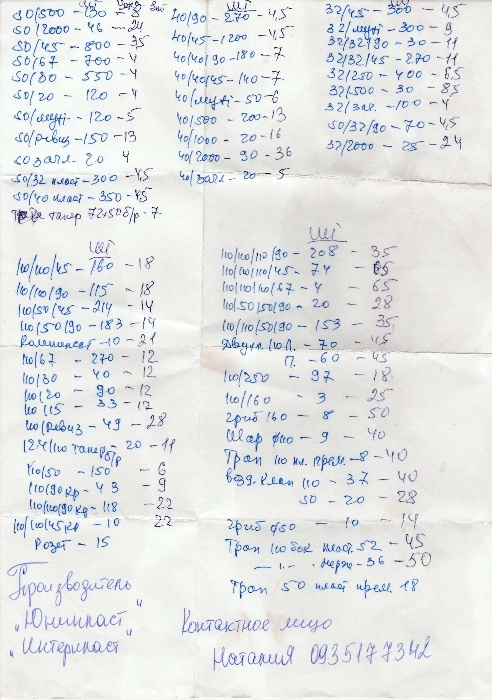 шт
50/500 - 130 - 3
50/2000 - 46 - 24
50/45 - 800 - 35
50/67 - 700 - 4
50/30 - 550 - 4
50/20 - 120 - 4
50/муфт - 120 - 5
50/ревиз - 150 - 13
50 загл - 20 4
50/32 пласт - 300 - 4,5
50/40 пласт - 350 - 4,5
тапер 72х50 б/р - 7
шт
40/90 - 270 - 4,5
40/45 - 1200 - 4,5
40/40/90 - 180 - 7
40/40/45 - 140 - 7
40/муфт - 50 - 6
40/500 - 200 - 13
40/1000 - 20 - 16
40/2000 - 90 - 36
40/загл - 20 - 5
шт
32/45 - 300 - 4,5
32/муфт - 300 - 9
32/32/90 - 30 - 11
32/32/45 - 270 - 11
32/250 - 400 - 6,5
32/500 - 30 - 8,5
32/загл. - 100 - 4
50/32/90 - 70 - 4,5
32/2000 - 25 - 24
шт
110/110/45 - 160 - 18
110/110/90 - 115 - 18
110/50/45 - 214 - 14
110/50/90 - 183 - 14
Компенсат - 10 - 21
110/67 - 270 - 12
110/30 - 40 - 12
110/20 - 90 - 12
110/15 - 33 - 12
110/Ревиз - 49 - 28
124/110 тапер б/р - 20 - 11
110/50 - 150 - 6
110/90 кр - 43 - 9
110/110/90 кр - 118 - 22
110/110/45 кр - 10 22
Розет - 15
шт
110/110/110/90 - 208 - 35
110/110/110/45 - 74 - 65
110/110/110/67 - 4 - 65
110/50/50/90 - 20 - 28
110/110/50/90 - 153 - 35
Двухпл 110 Л. - 70 - 45
П. - 60 - 45
110/250 - 97 - 18
110/160 - 3 - 25
гриб 160 - 8 - 50
Шар ф110 - 9 - 40
Трап 110 пл. прям. - 8 - 40
возд. Клап 110 - 37 - 40
50 - 20 - 28
гриб ф50 - 10 - 14
Трап 110 бок пласт. 52 - 45
— ,, — . нерж - 36 - 50
Трап 50 пласт прям. 18
Производитель
"Юнипласт"
"Интерпласт"
Контактное лицо
Наталия 0935177342